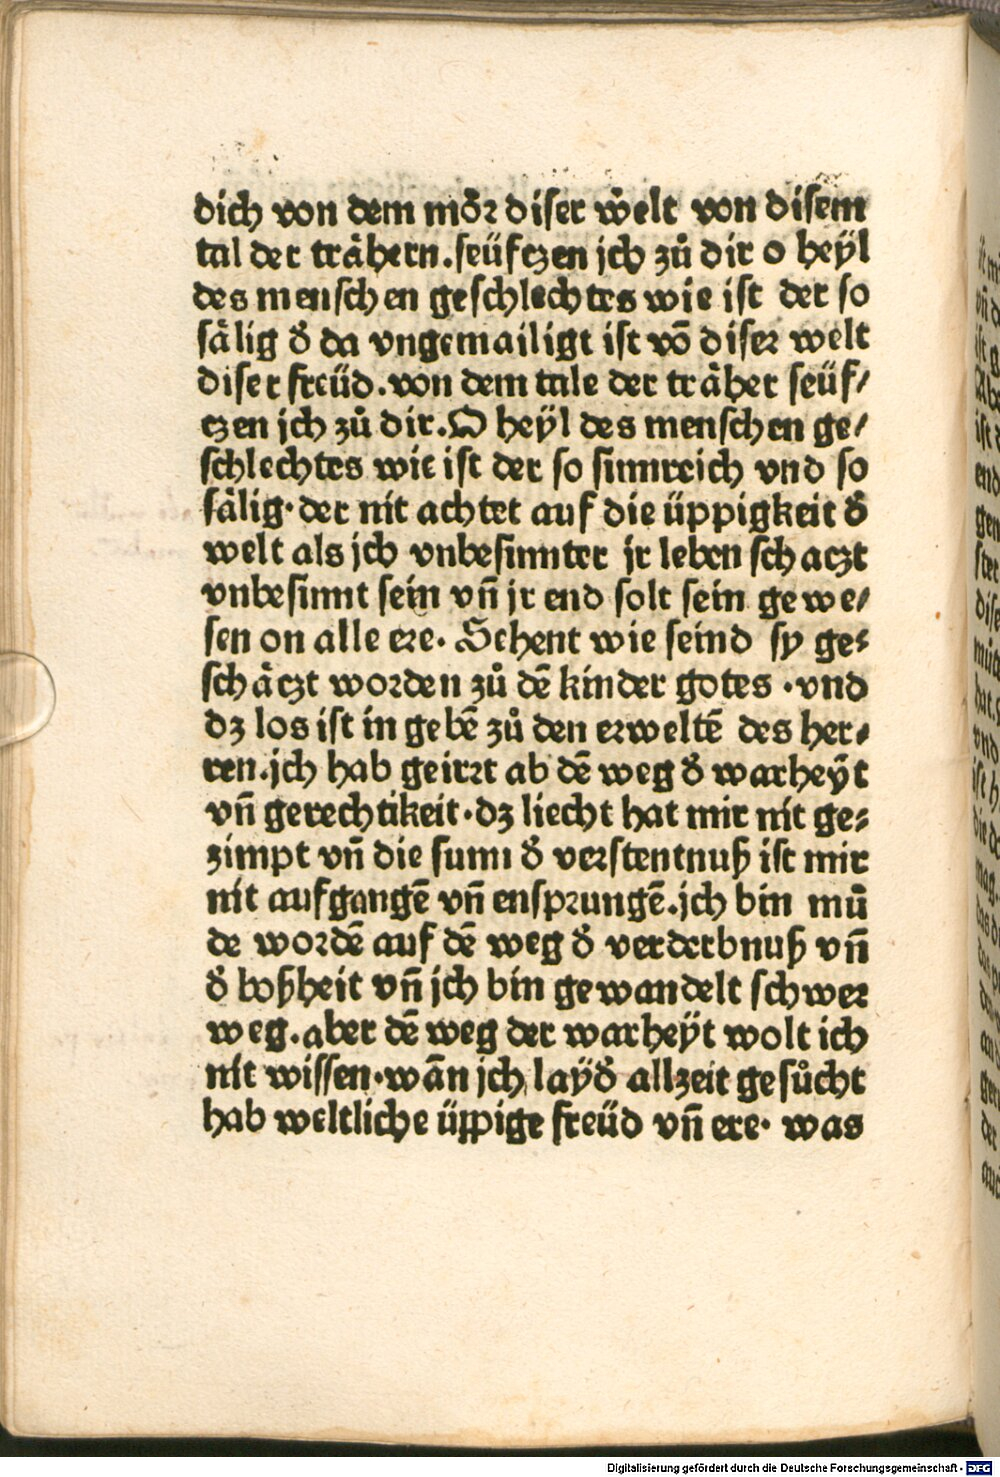 dich von dem moͤꝛ diser welt von disem
tal der traͤhern.seüfczen jch zuͦ dir o heÿl
des menschen geschlechtes wie ist der so
saͤlig d̕ da vngemailigt ist võ diseꝛ welt
diser freüd.von dem tale der traͤher seüf/
czen jch zuͦ dir.O heÿl des menschen ge/
schlechtes wie ist der so sinnreich vnd so
saͤlig·der nit achtet auf die üppigkeit d̕
welt als jch vnbesinnter jr leben schaczt
vnbesinnt sein vñ jr end solt sein gewe/
sen on alle eꝛe· Sehent wie seind sy ge⸗
schaͤczt woꝛden zuͦ dẽ kinder gotes ·vnd
dz los ist in gebẽ zuͦ den eꝛweltẽ des her⸗
ren.jch hab geirꝛt ab dẽ weg d̕ warheÿt
vñ gerechtikeit·dz liecht hat mir nit ge⸗
zimpt vñ die sunn d̕ veꝛstentnuß ist mir
nit aufgangẽ vñ enspꝛungẽ.jch bin muͤ
de woꝛdẽ auf dẽ weg d̕ verderbnuß vñ
d̕ boßheit vñ jch bin gewandelt schweꝛ
weg.aber dẽ weg der warheÿt wolt ich
nit wissen·wãn jch layd̕ allzeit gesuͦcht
hab weltliche üppige freüd vñ ere· was
Digitalisierung gefördert durch die Deutsche Forschungsgemeinschaft - DFG